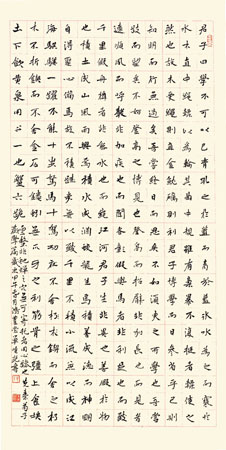 君子曰學不可以已青取之於藍而青於藍冰水為之而寒於
水木直中繩輮以為輪其曲中規雖有槁暴不復挺者輮使之
然也故木受繩則直金就礪則利君子博學而日參省乎己則
知明而行無過矣吾嘗終日而思矣不如須臾之所學也吾嘗
跂而望矣不如登高之博見也登高而招臂非加長也而見者
遠順風而呼聲非加疾也而聞者彰假輿馬者非利足也而致
千里假舟楫者非能水也而絕江河君子生非異也善假於物
也積土成山風雨興焉積水成淵蛟龍生焉積善成德而神明
自得聖心備焉故不積跬步無以至千里不積小流無以成江
海騏驥一躍不能十步駑馬十駕功在不舍鍥而舍之朽
木不折鍥而不舍金石可鏤蚓無爪牙之利筋骨之強上食埃
土下飲黃泉用心一也蟹六跪
而二螯非蛇蟺之穴無可寄託者用心躁也荀子
勸學篇歲次甲午